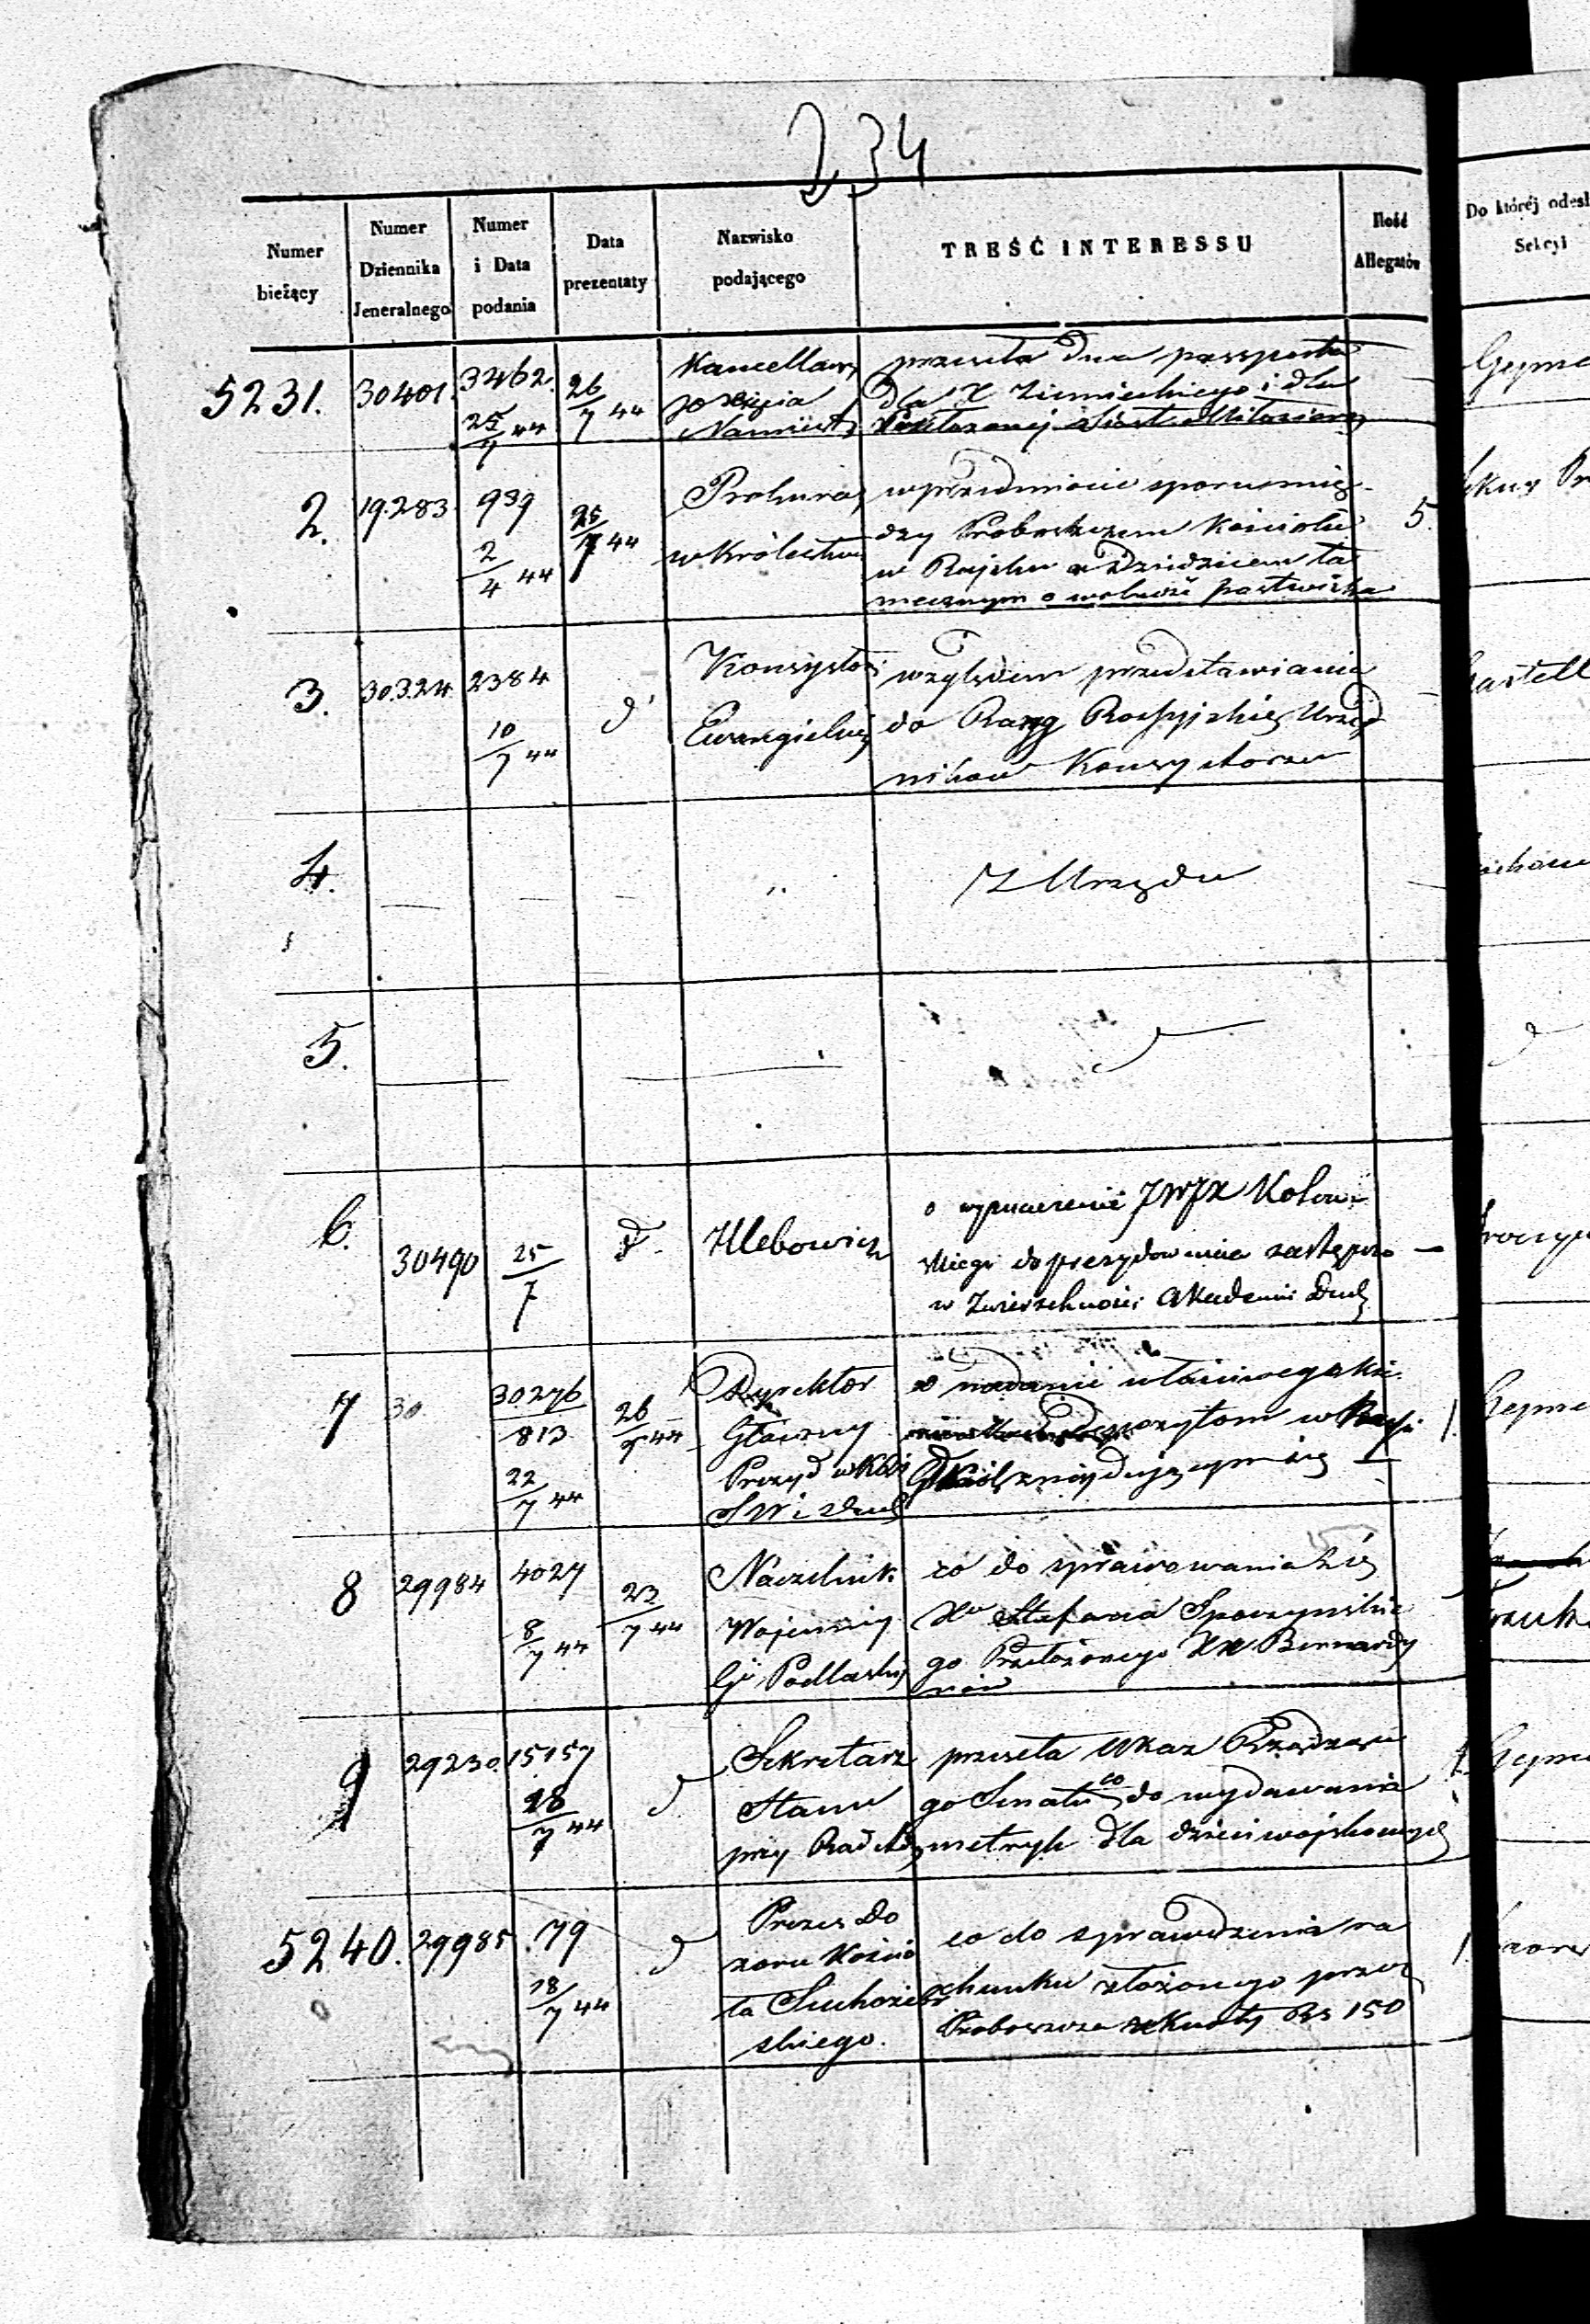 234
Numer bieżący
Numer Dziennika Jeneralnego
Numer i Data podania
Data prezentaty
Nazwisko podającego
TREŚĆ INTERESSU
Ilość Allegatów
Do któréj odesł
Sekcyi
5231. 30401. 3462. 25/7 44 26/7 44
Kancellary
Xięcia
Namiest
przesła dwa passporta
dla X Ziemieckiego i dla
Przełożonej Siostr Miłosierny
2. 19283 939 2/4 44 25/7 44
Prokura
w Królestwie
w przedmiocie sporu mię-
dzy Proboszczem Kościoła
w Rajsku a Dziedzicem ta
mecznym o wolność pastwiska
5.
3. 30324 2384 10/7 44 d
Konsystor
Ewangielic
względem przedstawiania
do Rang Rossyjskię Urzęd
ników Konsystorza
4.
Z Urzędu
5.
6. 30490 25/7 d
Hlebowicz
o wyznaczenie JWJX Kotow-
skiego do prezydowania zastępczo
w Zwierzchności Akademii Duch
7 30 30276/813 22/7 44 26/7 44
Dyrektor
Główny
Prezyd w Kōis
S W i Duch
o nadanie właściwego kie-
depozytom w
znajdującym się
1
8 29984 4027 8/7 44 23/7 44
Naczelnik
Wojenny
Gii Podlaskiej
co do sprawowania się
Xa Stefana Spoczyńskie
go Przełożonego XX Bernardy
nów
9 29230 15157 28/7 44 d
Sekretarz
Stanu
przy Rad Adm
przesła Ukaz Rządzące
go Senatu co do wydawania
metryk dla dzieci wojskowych
5240. 29985 79 18/7 44 d
Prezes Do
zoru Kościo
ła Suchożebr
skiego.
co do sprawdzenia ra
chunku złożonego przez
Proboszcza z Kwoty Rs 150
1